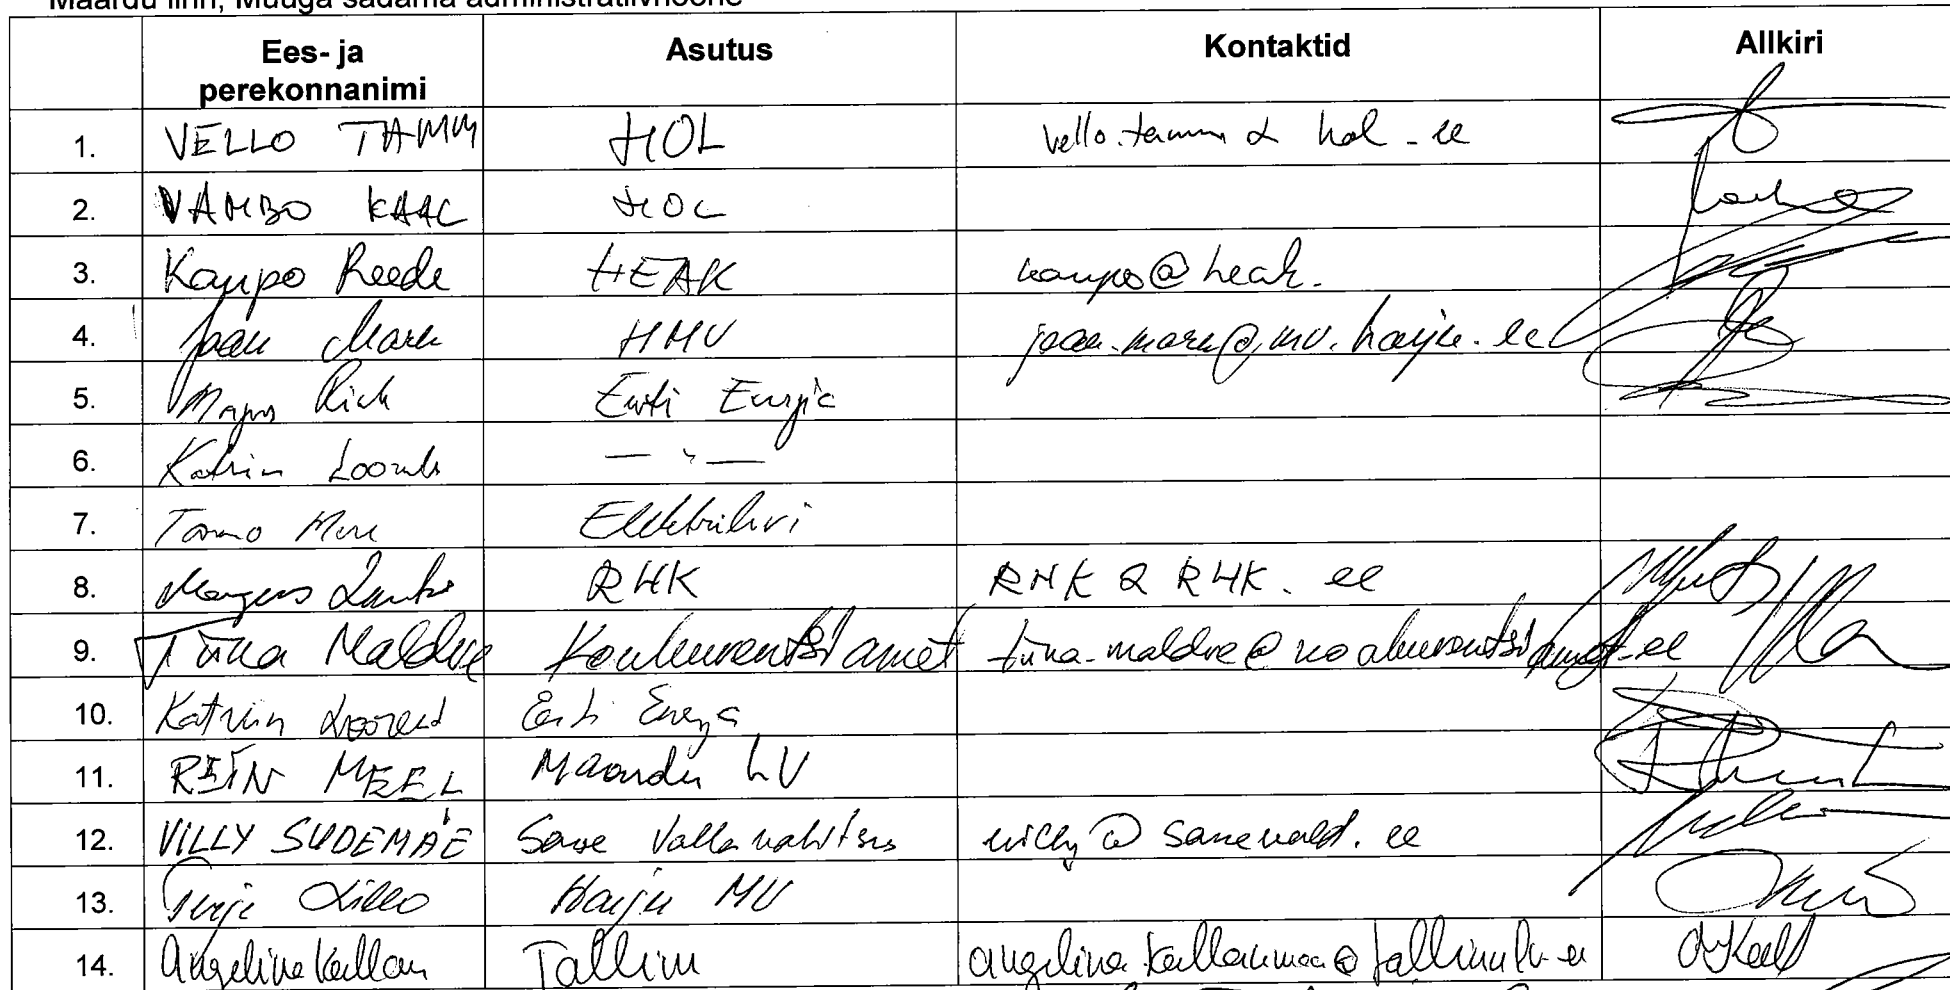 Maardu linn, Muuga sadama administratiivhoone
Ees- ja perekonnanimi Asutus Kontaktid Allkiri
1. VELLO TAMM HOL vello.tamm @ hol.ee
2. VAMBO KAAL HOL
3. Kaupo Reede HEAK kaupo@heak.
4. Jaan Mark HMV jaan.mark@mv.harju.ee
5. Eesti Energia
6. Katrin — " —
7. Tarmo Elektrilevi
8. RHK RHK @ RHK. ee
9. Tiina Maldre Konkurentsiamet tiina.maldre@konkurentsiamet.ee
10. Katrin Eesti Energia
11. REIN MEEL Maardu LV
12. VILLY SUDEMÄE Saue Vallavalitsus villy @ sauevald.ee
13. Terje Lillo Harju MV
14. Angelina Tallinn